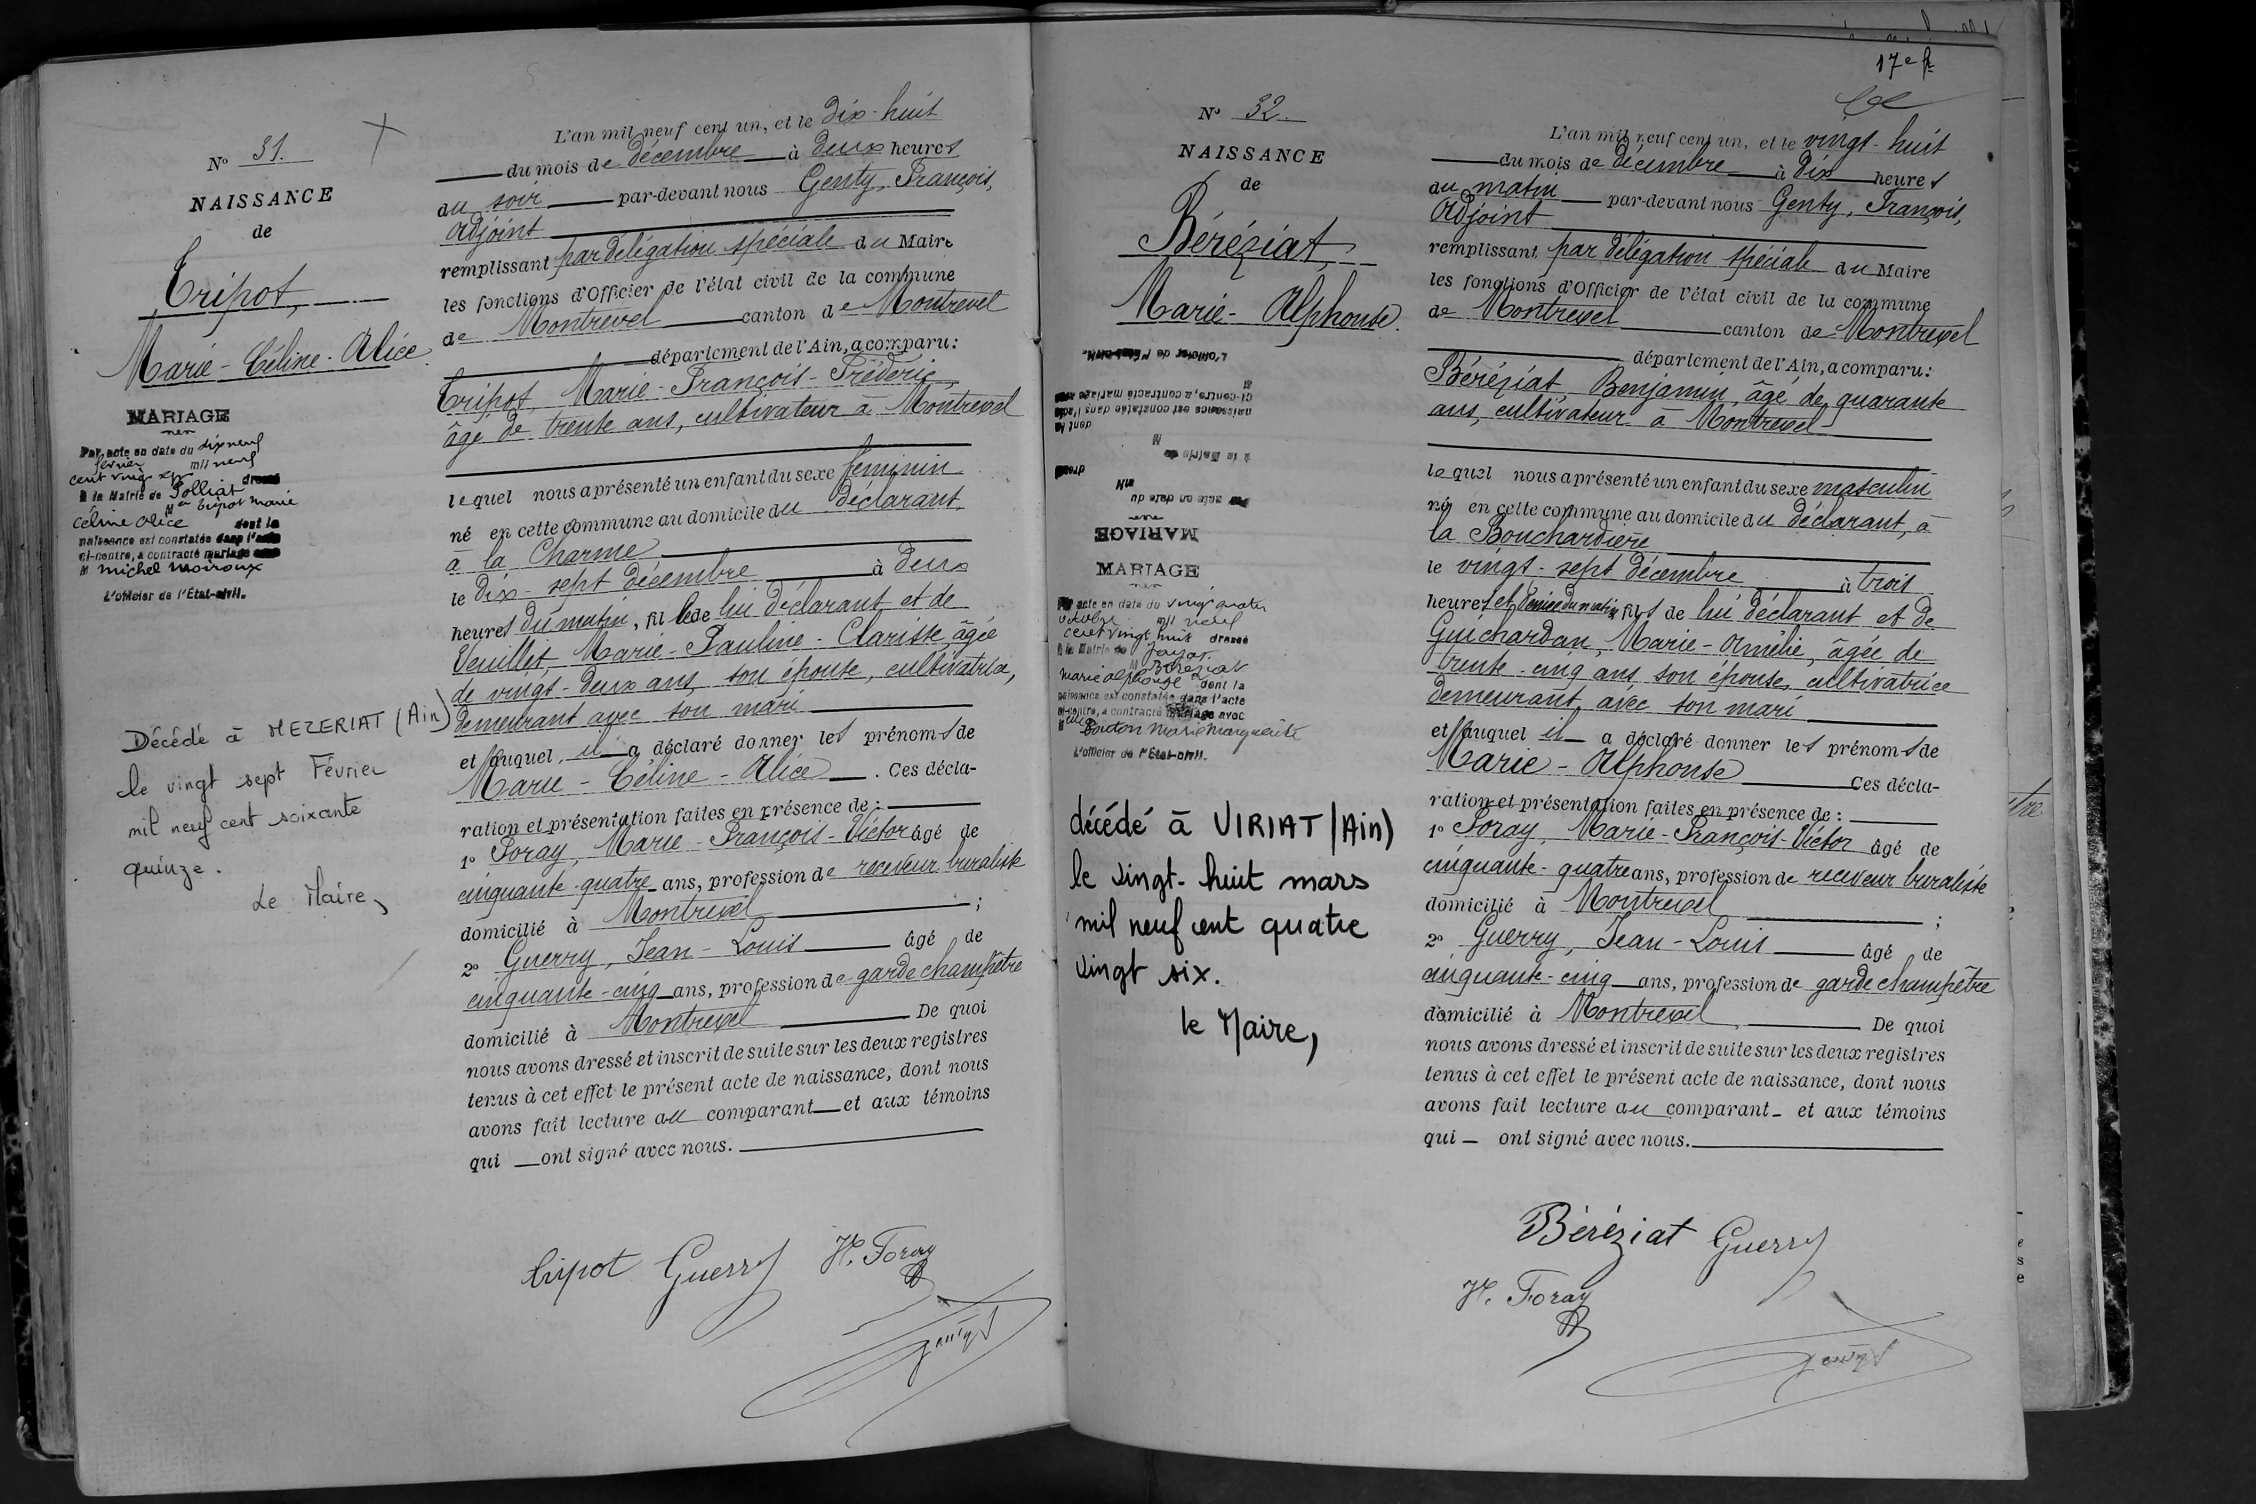 N° 31.
NAISSANCE
de
Tripot,
Marie-Céline-Alice
MARIAGE
Par acte en date du dix neuf
février mil neuf
cent vingt dressé
à la Mairie de Polliat
Tripot Marie
Céline Alice dont la
naissance est constatée dans l'acte
ci-contre, a contracté mariage avec
M Michel Moiroux
L'officier de l'État-civil.
Décédé à MEZERIAT (Ain)
le vingt sept Février
mil neuf cent soixante
quinze.
Le Maire,
L'an mil neuf cent un, et le dix-huit
du mois de décembre à deux heures
du soir par-devant nous Genty, François,
Adjoint
remplissant par délégation spéciale du Maire
les fonctions d'Officier de l'état civil de la commune
de Montrevel canton de Montrevel
département de l'Ain, a comparu:
Tripot Marie-François-Fréderic
âgé de trente ans, cultivateur à Montrevel
lequel nous a présenté un enfant du sexe feminin
né en cette commune au domicile du déclarant
à la Charme
le dix-sept décembre à deux
heures du matin, fille de lui déclarant et de
Veuillet, Marie-Pauline-Clarisse, âgée
de vingt-deux ans, son épouse, cultivatrice,
demeurant avec son mari
et auquel il a déclaré donner les prénoms de
Marie-Céline-Alice. Ces décla-
ration et présentation faites en présence de:
1° Foray, Marie-François-Victor âgé de
cinquante-quatre ans, profession de receveur buraliste
domicilié à Montrevel ;
2° Guerry, Jean-Louis âgé de
cinquante-cinq ans, profession de garde champêtre
domicilié à Montrevel De quoi
nous avons dressé et inscrit de suite sur les deux registres
tenus à cet effet le présent acte de naissance, dont nous
avons fait lecture au comparant et aux témoins
qui ont signé avec nous.
Tripot Guerry H. Foray
Genty
17e f.
N° 32.
NAISSANCE
de
Béréziat,
Marie-Alphonse.
L'officier de l'État-civil.
ci-contre, a contracté mariage avec
naissance est constatée dans l'acte
dont la
M
à la Mairie de
dressé
mil
Par acte en date du
MARIAGE
MARIAGE
Par acte en date du vingt quatre
octobre mil neuf
cent vingt huit dressé
à la Mairie de Jayat
M Béréziat
Marie Alphonse dont la
naissance est constatée dans l'acte
ci-contre, a contracté mariage avec
Mlle Bouton Marie Marguerite
L'officier de l'État-civil.
décédé à VIRIAT (Ain)
le vingt-huit mars
mil neuf cent quatre
vingt six.
le Maire,
L'an mil neuf cent un, et le vingt-huit
du mois de décembre à dix heures
du matin par-devant nous Genty, François,
Adjoint
remplissant par délégation spéciale du Maire
les fonctions d'Officier de l'état civil de la commune
de Montrevel canton de Montrevel
département de l'Ain, a comparu:
Béréziat Benjamin, âgé de quarante
ans, cultivateur à Montrevel
lequel nous a présenté un enfant du sexe masculin
né en cette commune au domicile du déclarant, à
la Bouchardière
le vingt-sept décembre à trois
heures et demie du matin, fils de lui déclarant et de
Guichardan, Marie-Amélie, âgée de
trente-cinq ans son épouse, cultivatrice
demeurant avec son mari
et auquel il a déclaré donner les prénoms de
Marie-Alphonse Ces décla-
ration et présentation faites en présence de:
1° Foray, Marie-François-Victor âgé de
cinquante-quatre ans, profession de receveur buraliste
domicilié à Montrevel ;
2° Guerry, Jean-Louis âgé de
cinquante-cinq ans, profession de garde champêtre
domicilié à Montrevel De quoi
nous avons dressé et inscrit de suite sur les deux registres
tenus à cet effet le présent acte de naissance, dont nous
avons fait lecture au comparant et aux témoins
qui ont signé avec nous.
Béréziat Guerry
H. Foray
Genty